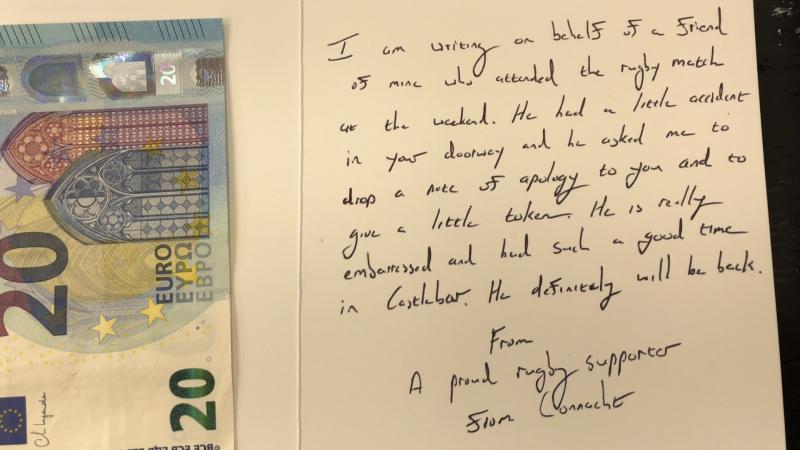 20
EURO
ΕΥΡΩ
ЕВРО
20
20
©BCE ECB
I am writing on behalf of a friend
of mine who attended the rugby match
at the weekend. He had a little accident
in your doorway and he asked me to
drop a note of apology to you and to
give a little token. He is really
embarressed and had such a good time
in Castlebar. He definitely will be back.
From
A proud rugby supporter
From Connacht